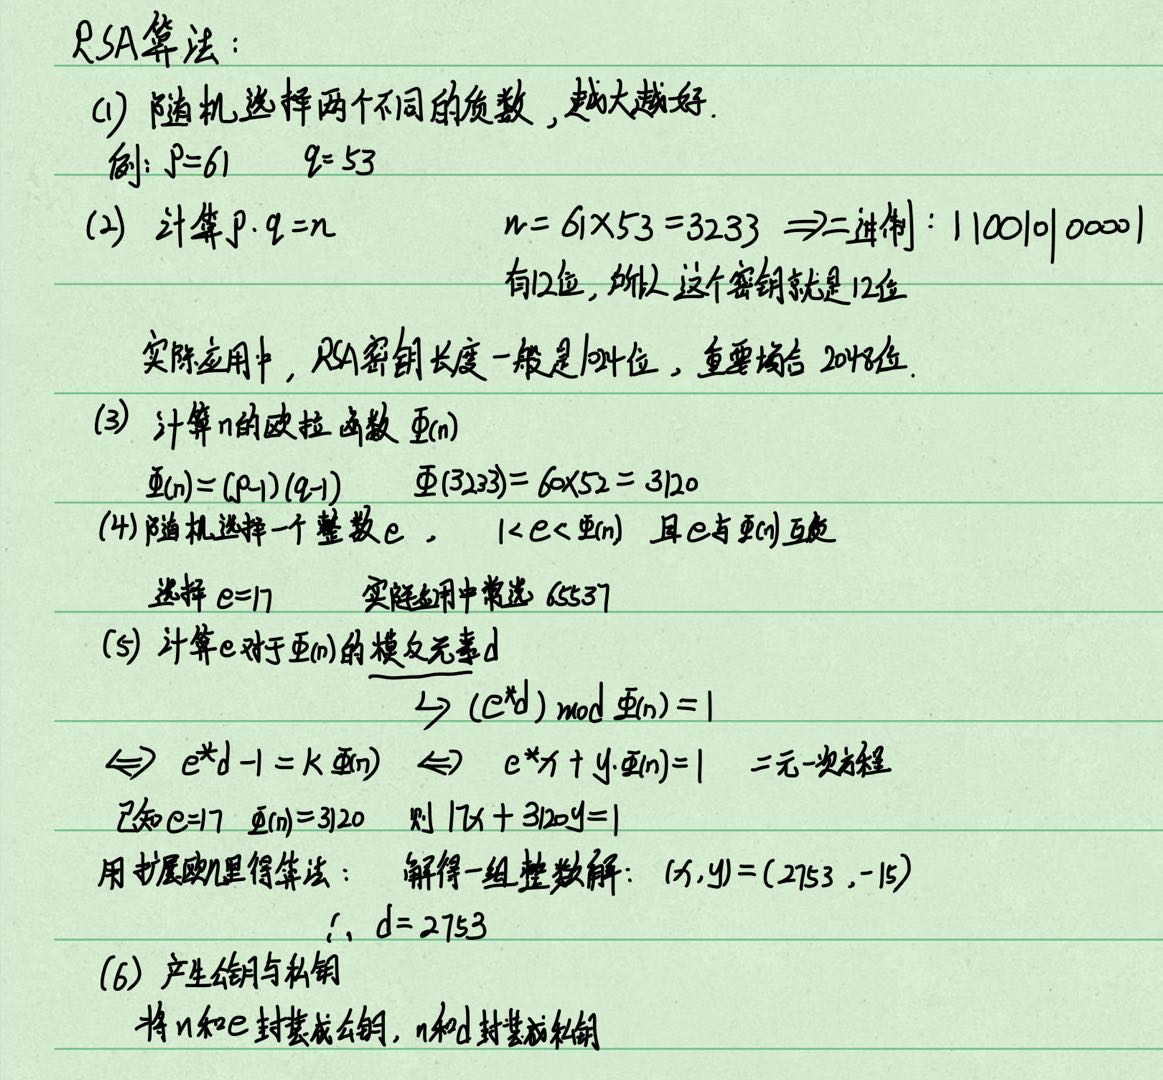 RSA算法：
(1) 随机选择两个不同的质数，越大越好.
例：p=61 q=53
(2) 计算p·q=n n=61×53=3233 ⇒二进制：110010100001
有12位，所以这个密钥就是12位
实际应用中，RSA密钥长度一般是1024位，重要场合2048位.
(3) 计算n的欧拉函数 Φ(n)
Φ(n)=(p-1)(q-1) Φ(3233)=60×52=3120
(4) 随机选择一个整数e， 1<e<Φ(n) 且e与Φ(n)互质
选择 e=17 实际应用中常选 65537
(5) 计算e对于Φ(n)的模反元素d
↳ (e*d) mod Φ(n)=1
⇔ e*d-1=kΦ(n) ⇔ e*x+y·Φ(n)=1 二元一次方程
已知e=17 Φ(n)=3120 则 17x+3120y=1
用扩展欧几里得算法： 解得一组整数解：(x,y)=(2753,-15)
∴ d=2753
(6) 产生公钥与私钥
将n和e封装成公钥，n和d封装成私钥